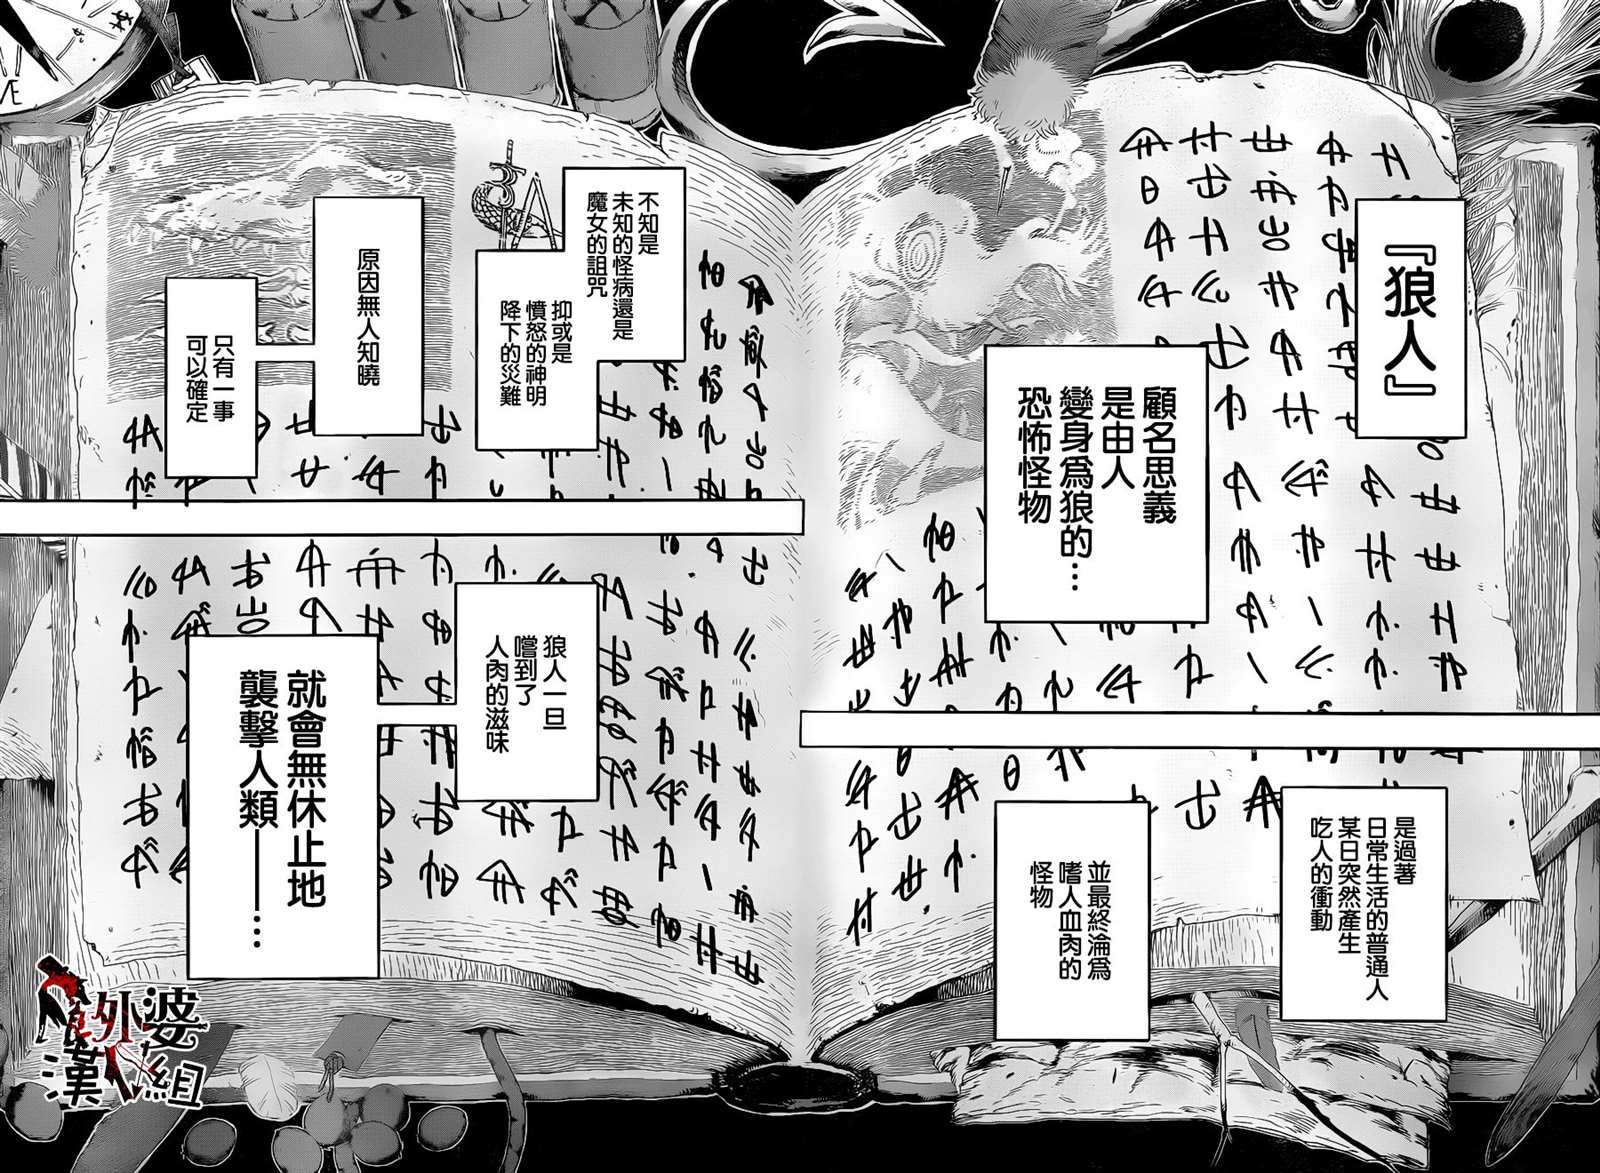 『狼人』
顧名思義
是由人
變身爲狼的…
恐怖怪物
是過著
日常生活的普通人
某日突然產生
吃人的衝動
並最終淪爲
嗜人血肉的
怪物
不知是
未知的怪病還是
魔女的詛咒
抑或是
憤怒的神明
降下的災難
原因無人知曉
只有一事
可以確定
狼人一旦
嚐到了
人肉的滋味
就會無休止地
襲擊人類——…
外婆
漢化組